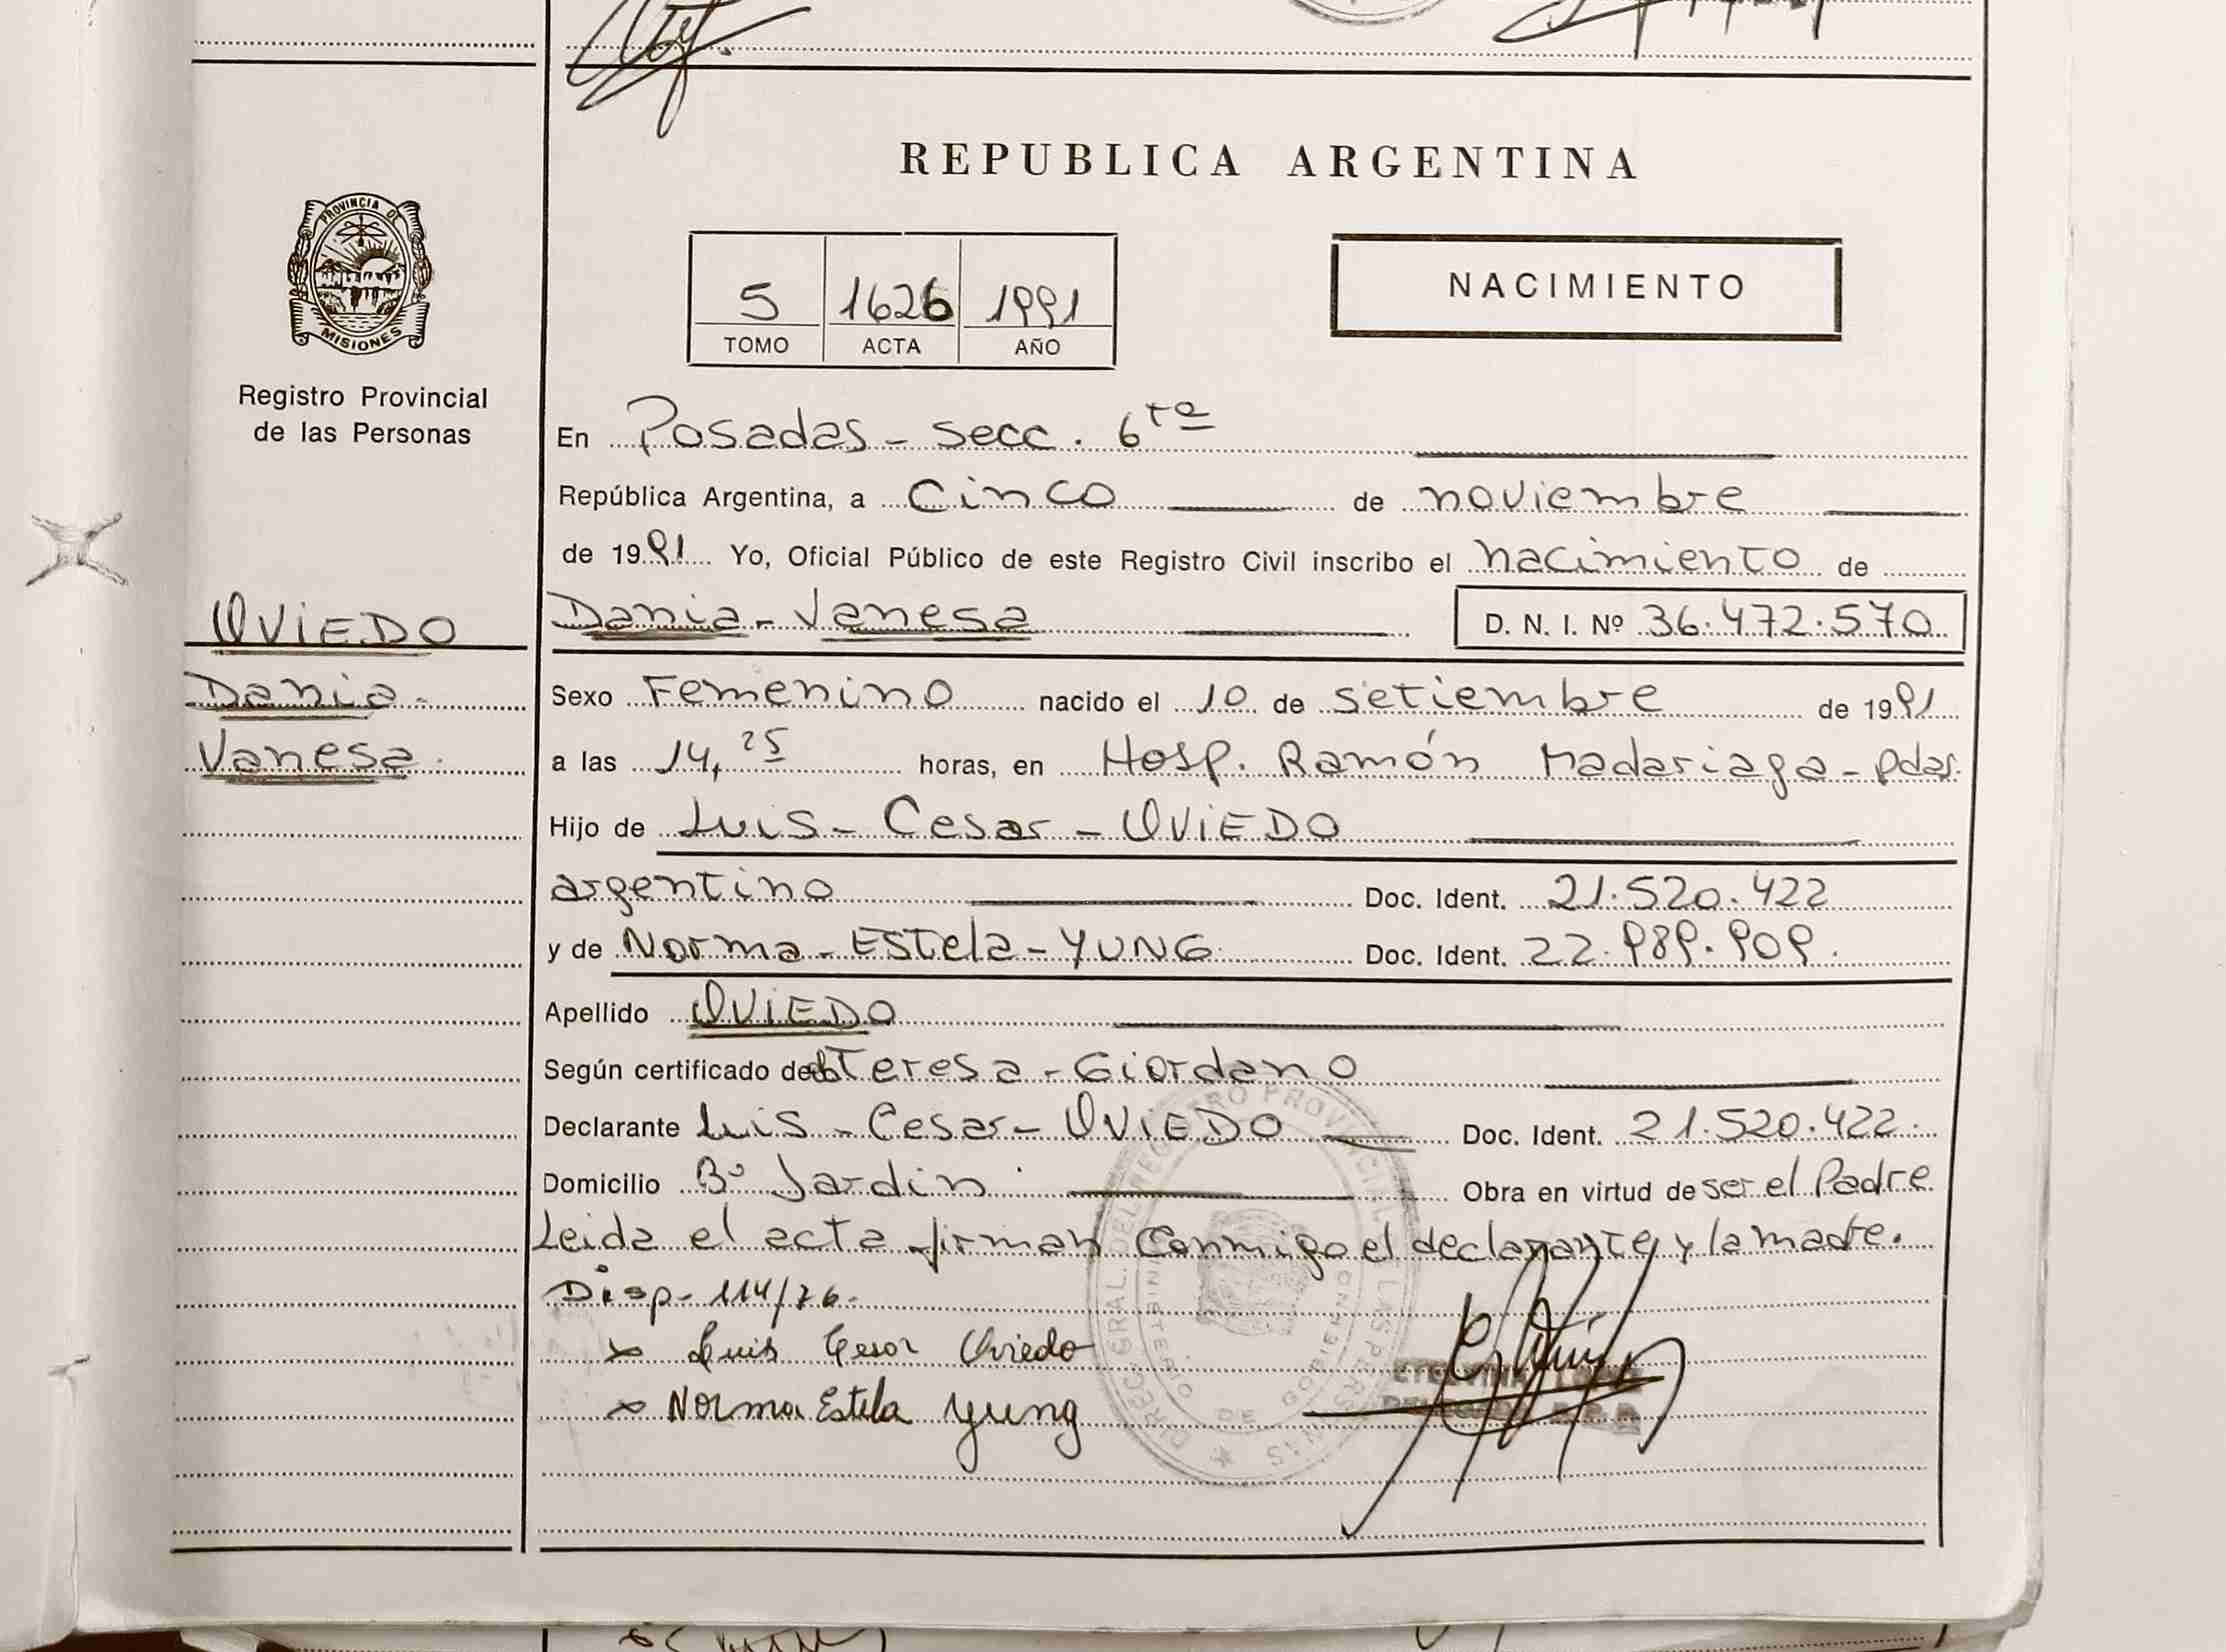 REPUBLICA ARGENTINA
PROVINCIA DE
MISIONES
Registro Provincial
de las Personas
5 1626 1991
TOMO ACTA AÑO
NACIMIENTO
En Posadas - secc. 6ta
República Argentina, a cinco de noviembre
de 1991 Yo, Oficial Público de este Registro Civil inscribo el nacimiento de
OVIEDO
Dania - Vanesa D. N. I. Nº 36.472.570
Dania -
Vanesa.
Sexo Femenino nacido el 10 de setiembre de 1991
a las 14,25 horas, en Hosp. Ramón Madariaga - Pdas.
Hijo de Luis - Cesar - OVIEDO
argentino Doc. Ident. 21.520.422
y de Norma - Estela - YUNG. Doc. Ident. 22.989.909.
Apellido OVIEDO
Según certificado de Teresa - Giordano
Declarante Luis - Cesar - OVIEDO Doc. Ident. 21.520.422.
Domicilio Bº Jardin Obra en virtud de ser el Padre
Leida el acta firman conmigo el declarante y la madre.
Disp. 114/76.
x Luis Cesar Oviedo
x Norma Estela Yung